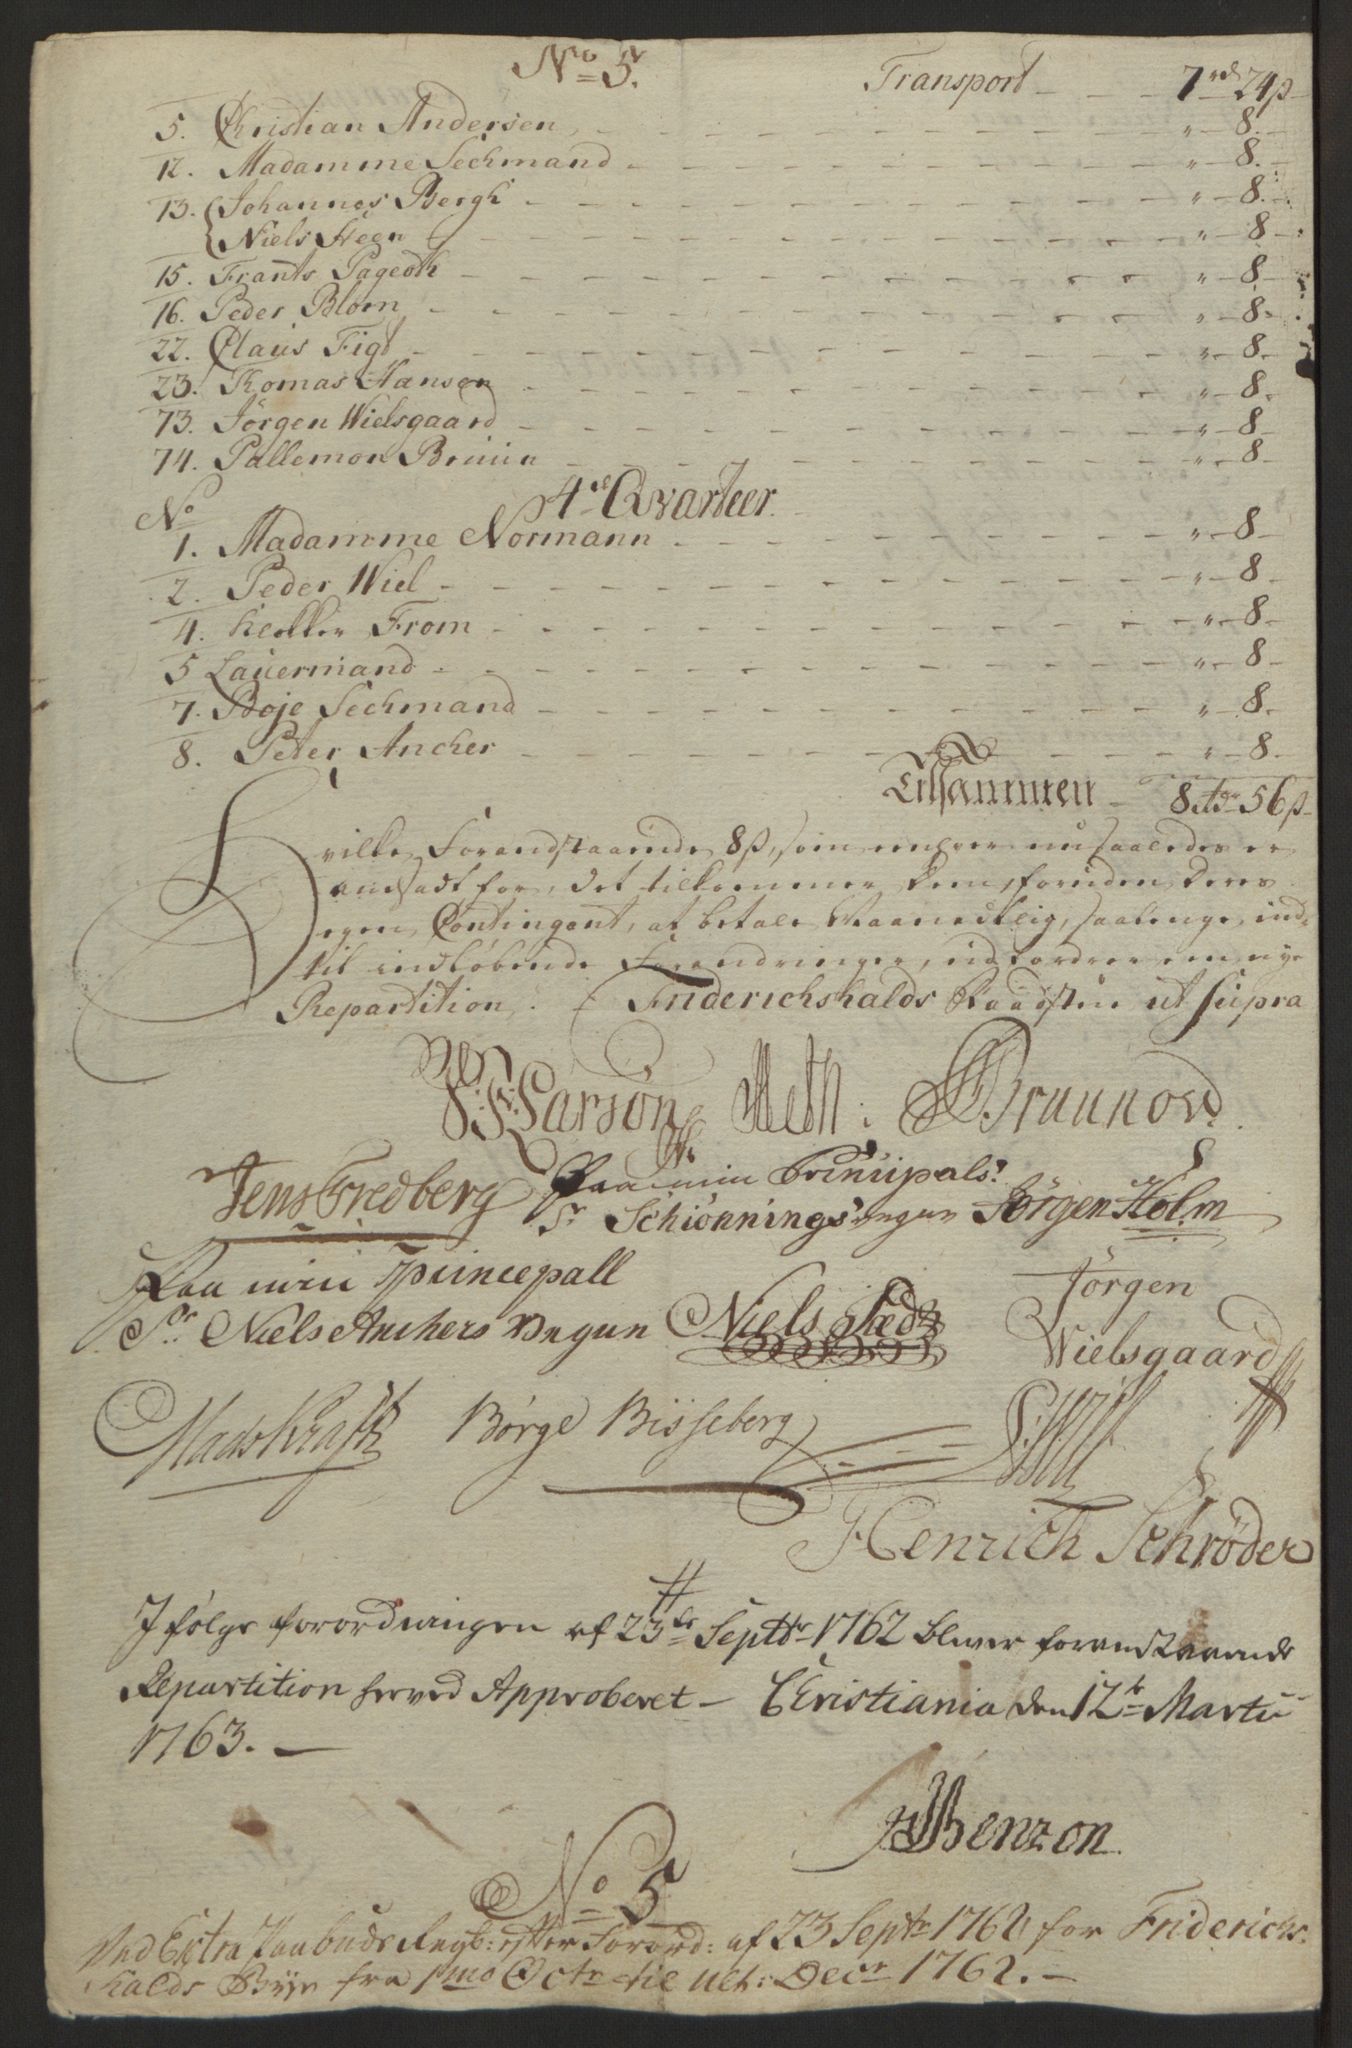 No 5.
Transport - - - 7 rd 24 ß
5. Christian Andersen - - - " - 8.
12. Madamme Sechmand - - - " - 8.
13. Johannes Bergh - - - " - 8.
Niels Heen - - - " - 8
15. Frants Pageoth - - - " - 8
16. Peder Blom - - - " - 8.
22. Claus Figt - - - " - 8.
23. Tomas Hansen - - - " - 8.
73. Jörgen Wielsgaard - - - " - 8
74. Pallemon Bruun - - - " - 8
4de Qvarteer.
No
1. Madamme Normann - - - " - 8
2. Peder Wiel - - - " - 8
4. Klokker From - - - " - 8.
5 Lauermand - - - " - 8
7. Boje Sechmand - - - " - 8.
8. Peter Ancher - - - " - 8.
Tilsammen - 8 rdr 56 ß
Hvilke Forandstaaende 8 ß, som enhver nu saaledes er
ansadt for, det tilkommer dem, foruden deres
egen Contingent, at betale Maanedtlig, saalenge, ind-
til indløbende Forandringer, udfordrer een nye
Repartition. Friderichshalds Raadstue ut supra
Larson Brunnow.
Jens Fredberg Paa min Principals
Sr Schiönnings vegne Jörgen Holm
Paa min Principall
Sr Niels Anchers Vegne Niels Jörgen
Wielsgaard
Mads Krafft Börge Bisseberg
Henrich Schrøder
Ifølge forordningen af 23de Septbr 1762 bliver forenstaaende
Repartition herved Approberet - Christiania den 12te Martii
1763. -
Benzon
No 5
Ved Extra Paabuds Regb: efter Forord: af 23 Septr 1762 for Friderichs-
halds Bye fra 1mo Octr til ult: Decr 1762. -